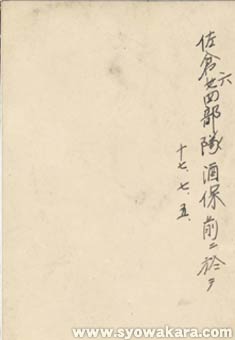 佐倉六四部隊酒保前ニ於テ
十七、七、五、
www.syowakara.com